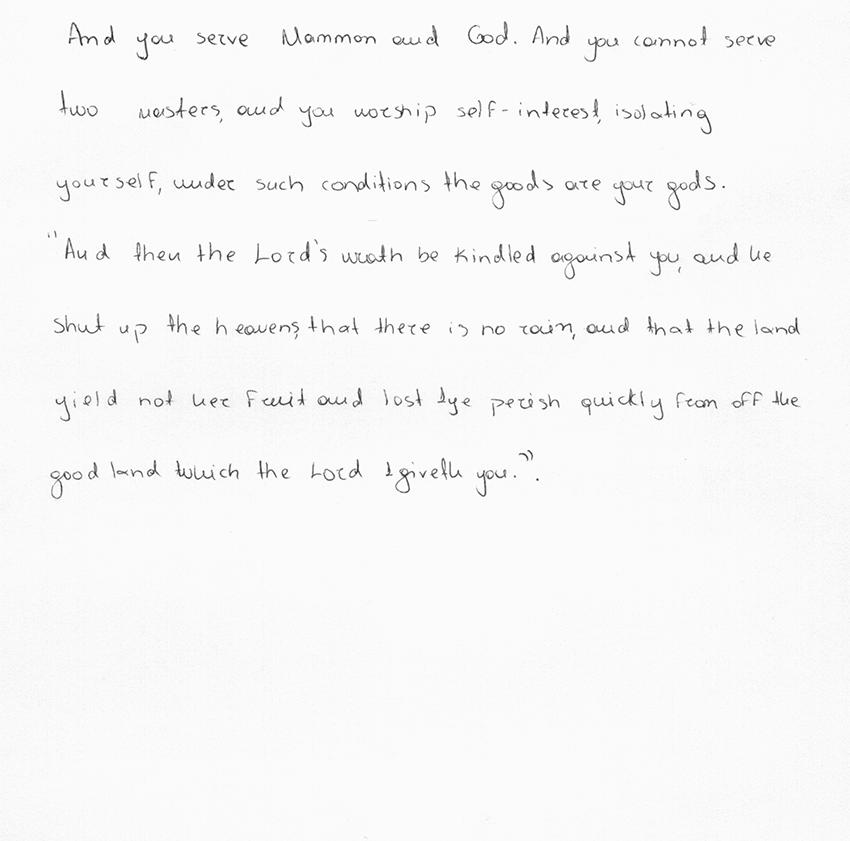 And you serve Mammon and God. And you cannot serve
two masters, and you worship self-interest, isolating
yourself, under such conditions the goods are your gods.
"And then the Lord's wrath be kindled against you, and he
shut up the heavens, that there is no rain, and that the land
yield not her fruit and lest ye perish quickly from off the
good land which the Lord giveth you.".